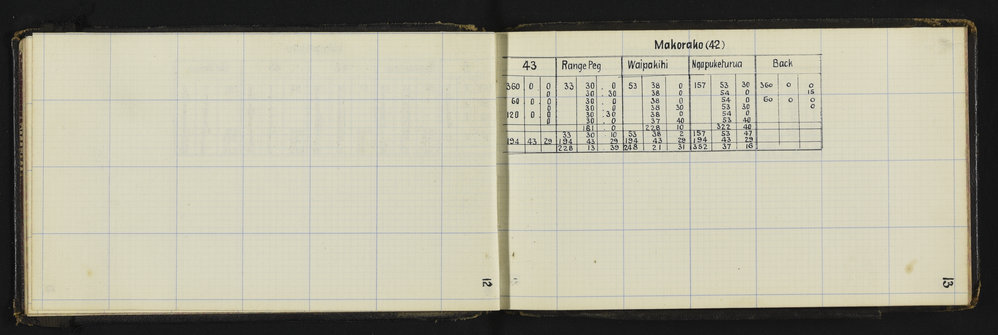 Makorako (42)
43 Range Peg Waipakihi Ngapuketurua Back
360 0 0 33 30 . 0 53 38 0 157 53 30 360 0 0
0 30 . 30 38 0 54 0 15
60 0 0 30 . 0 38 0 54 0 60 0 0
0 30 . 0 38 30 53 30 0
120 0 0 30 . 30 38 0 54 0
0 30 . 0 37 40 53 40
181 . 0 228 10 322 40
33 30 . 10 53 38 2 157 53 47
194 43 29 194 43 29 194 43 29 194 43 29
228 13 . 39 248 21 31 352 37 16
12
13